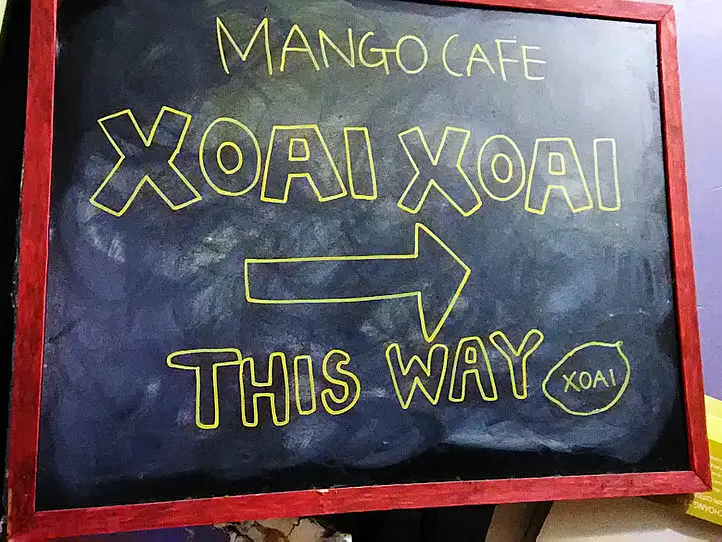 MANGO CAFE
XOAI XOAI
THIS WAY
XOAI